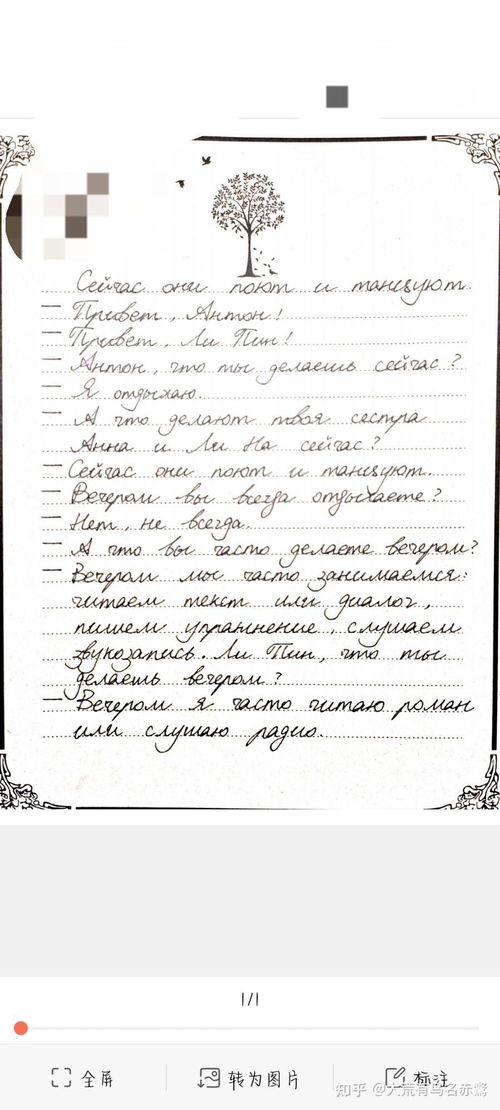 Сейчас они поют и танцуют.
— Привет, Антон!
— Привет, Ли Пин!
— Антон, что ты делаешь сейчас?
— Я отдыхаю.
— А что делают твоя сестра
Анна и Ли На сейчас?
— Сейчас они поют и танцуют.
— Вечером вы всегда отдыхаете?
— Нет, не всегда.
— А что вы часто делаете вечером?
— Вечером мы часто занимаемся:
читаем текст или диалог,
пишем упражнение, слушаем
звукозапись. Ли Пин, что ты
делаешь вечером?
— Вечером я часто читаю роман
или слушаю радио.
1/1
全屏 转为图片 标注
知乎 @大荒有鸟名赤鷩